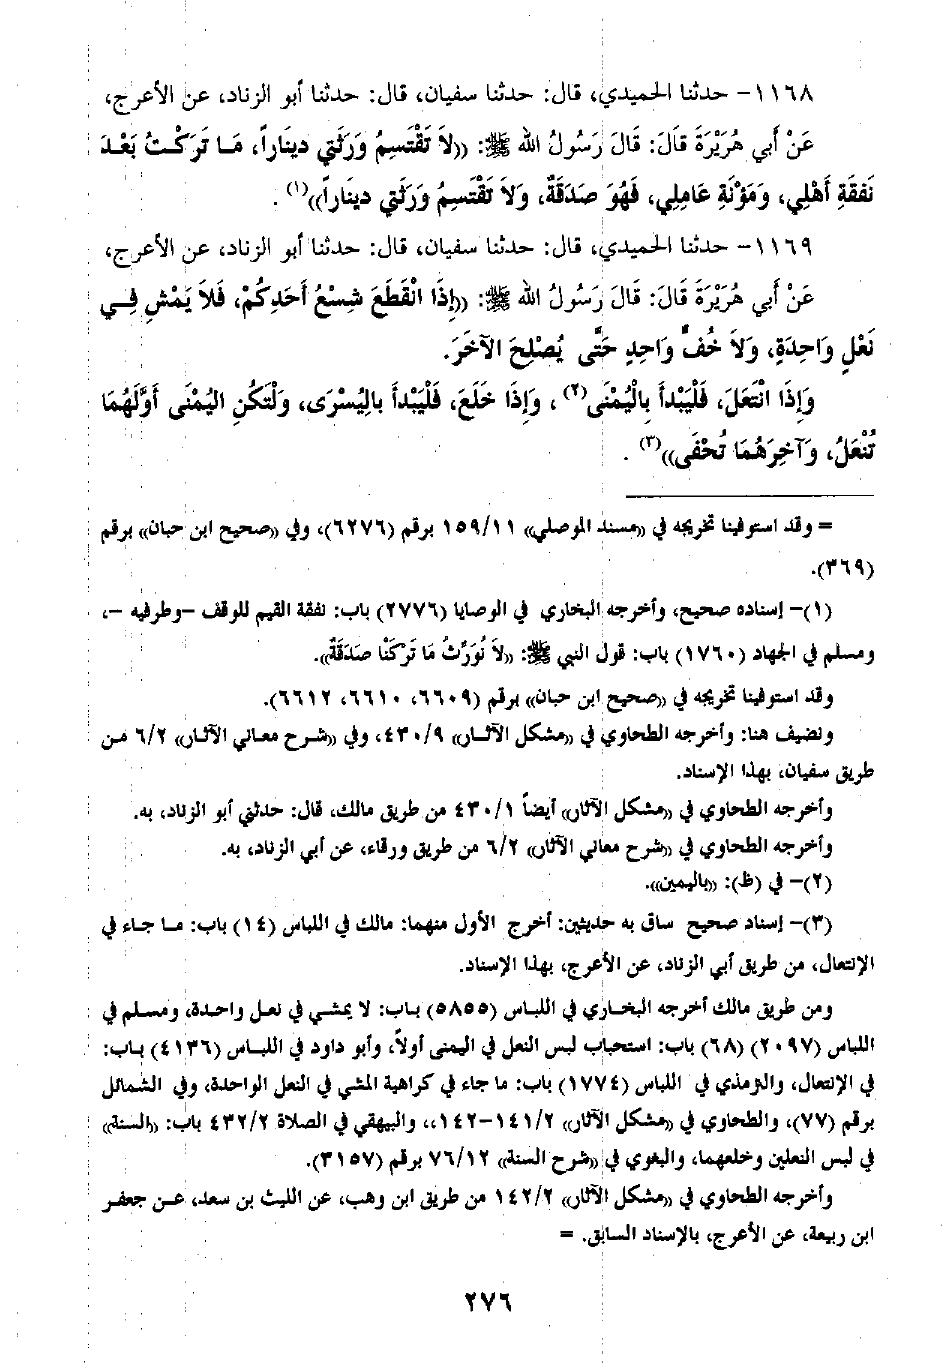 ١١٦٨- حدثنا الحميدي، قال: حدثنا سفيان، قال: حدثنا أبو الزناد، عن الأعرج،
عَنْ أَبِي هُرَيْرَةَ قَالَ: قَالَ رَسُولُ الله ﷺ: ((لاَ تَقْتَسِمُ وَرَثَتِي دِينَاراً، مَا تَرَكْتُ بَعْدَ
نَفَقَةِ أَهْلِي، وَمَؤُنَةِ عَامِلِي، فَهُوَ صَدَقَةٌ، وَلاَ تَقْتَسِمُ وَرَثَتِي دِينَاراً))(١) .
١١٦٩- حدثنا الحميدي، قال: حدثنا سفيان، قال: حدثنا أبو الزناد، عن الأعرج،
عَنْ أَبِي هُرَيْرَةَ قَالَ: قَالَ رَسُولُ الله ﷺ: ((إِذَا انْقَطَعَ شِسْعُ أَحَدِكُمْ، فَلاَ يَمْشِ فِي
نَعْلٍ وَاحِدَةٍ، وَلاَ خُفٍّ وَاحِدٍ حَتَّى يُصْلِحَ الآخَرَ.
وَإِذَا انْتَعَلَ، فَلْيَبْدأ بِالْيُمْنَى(٢) ، وَإِذَا خَلَعَ، فَلْيَبْدأ بالِيُسْرَى، وَلْتَكُنِ اليُمْنَى أَوَّلَهُمَا
تُنْعَلُ، وَآخِرَهُمَا تُحْفَى))(٣) .
= وقد استوفينا تخريجه في ((مسند الموصلي)) ١٥٩/١١ برقم (٦٢٧٦)، وفي ((صحيح ابن حبان)) برقم
(٣٦٩).
(١)- إسناده صحيح، وأخرجه البخاري في الوصايا (٢٧٧٦) باب: نفقة القيم للوقف -وطرفيه -،
ومسلم في الجهاد (١٧٦٠) باب: قول النبي ﷺ: ((لاَ نُوَرِّثُ مَا تَرَكْنَا صَدَقَةٌ)).
وقد استوفينا تخريجه في ((صحيح ابن حبان)) برقم (٦٦٠٩، ٦٦١٠، ٦٦١٢).
ونضيف هنا: وأخرجه الطحاوي في ((مشكل الآثار)) ٤٣٠/٩، وفي ((شرح معاني الآثار)) ٦/٢ من
طريق سفيان، بهذا الإسناد.
وأخرجه الطحاوي في ((مشكل الآثار)) أيضاً ٤٣٠/١ من طريق مالك، قال: حدثني أبو الزناد، به.
وأخرجه الطحاوي في ((شرح معاني الآثار)) ٦/٢ من طريق ورقاء، عن أبي الزناد، به.
(٢)- في (ظ): ((باليمين)).
(٣)- إسناد صحيح ساق به حديثين: أخرج الأول منهما: مالك في اللباس (١٤) باب: ما جاء في
الإنتعال، من طريق أبي الزناد، عن الأعرج، بهذا الإسناد.
ومن طريق مالك أخرجه البخاري في اللباس (٥٨٥٥) باب: لا يمشي في نعل واحدة، ومسلم في
اللباس (٢٠٩٧) (٦٨) باب: استحباب لبس النعل في اليمنى أولاً، وأبو داود في اللباس (٤١٣٦) باب:
في الإنتعال، والترمذي في اللباس (١٧٧٤) باب: ما جاء في كراهية المشي في النعل الواحدة، وفي الشمائل
برقم (٧٧)، والطحاوي في ((مشكل الآثار)) ١٤١/٢-١٤٢،، والبيهقي في الصلاة ٤٣٢/٢ باب: ((السنة))
في لبس النعلين وخلعهما، والبغوي في ((شرح السنة)) ٧٦/١٢ برقم (٣١٥٧).
وأخرجه الطحاوي في ((مشكل الآثار)) ١٤٢/٢ من طريق ابن وهب، عن الليث بن سعد، عن جعفر
ابن ربيعة، عن الأعرج، بالإسناد السابق. =
٢٧٦